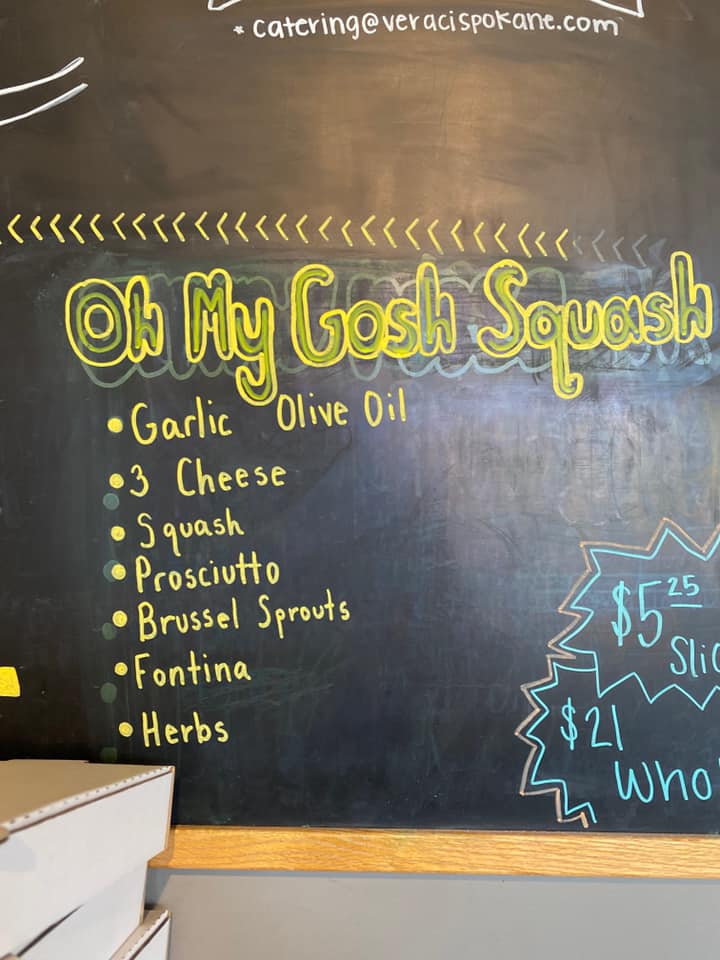 * catering@veracispokane.com
Oh My Gosh Squash
• Garlic Olive Oil
• 3 Cheese
• Squash
• Prosciutto
• Brussel Sprouts
• Fontina
• Herbs
$5 25
Slic
$21
Who